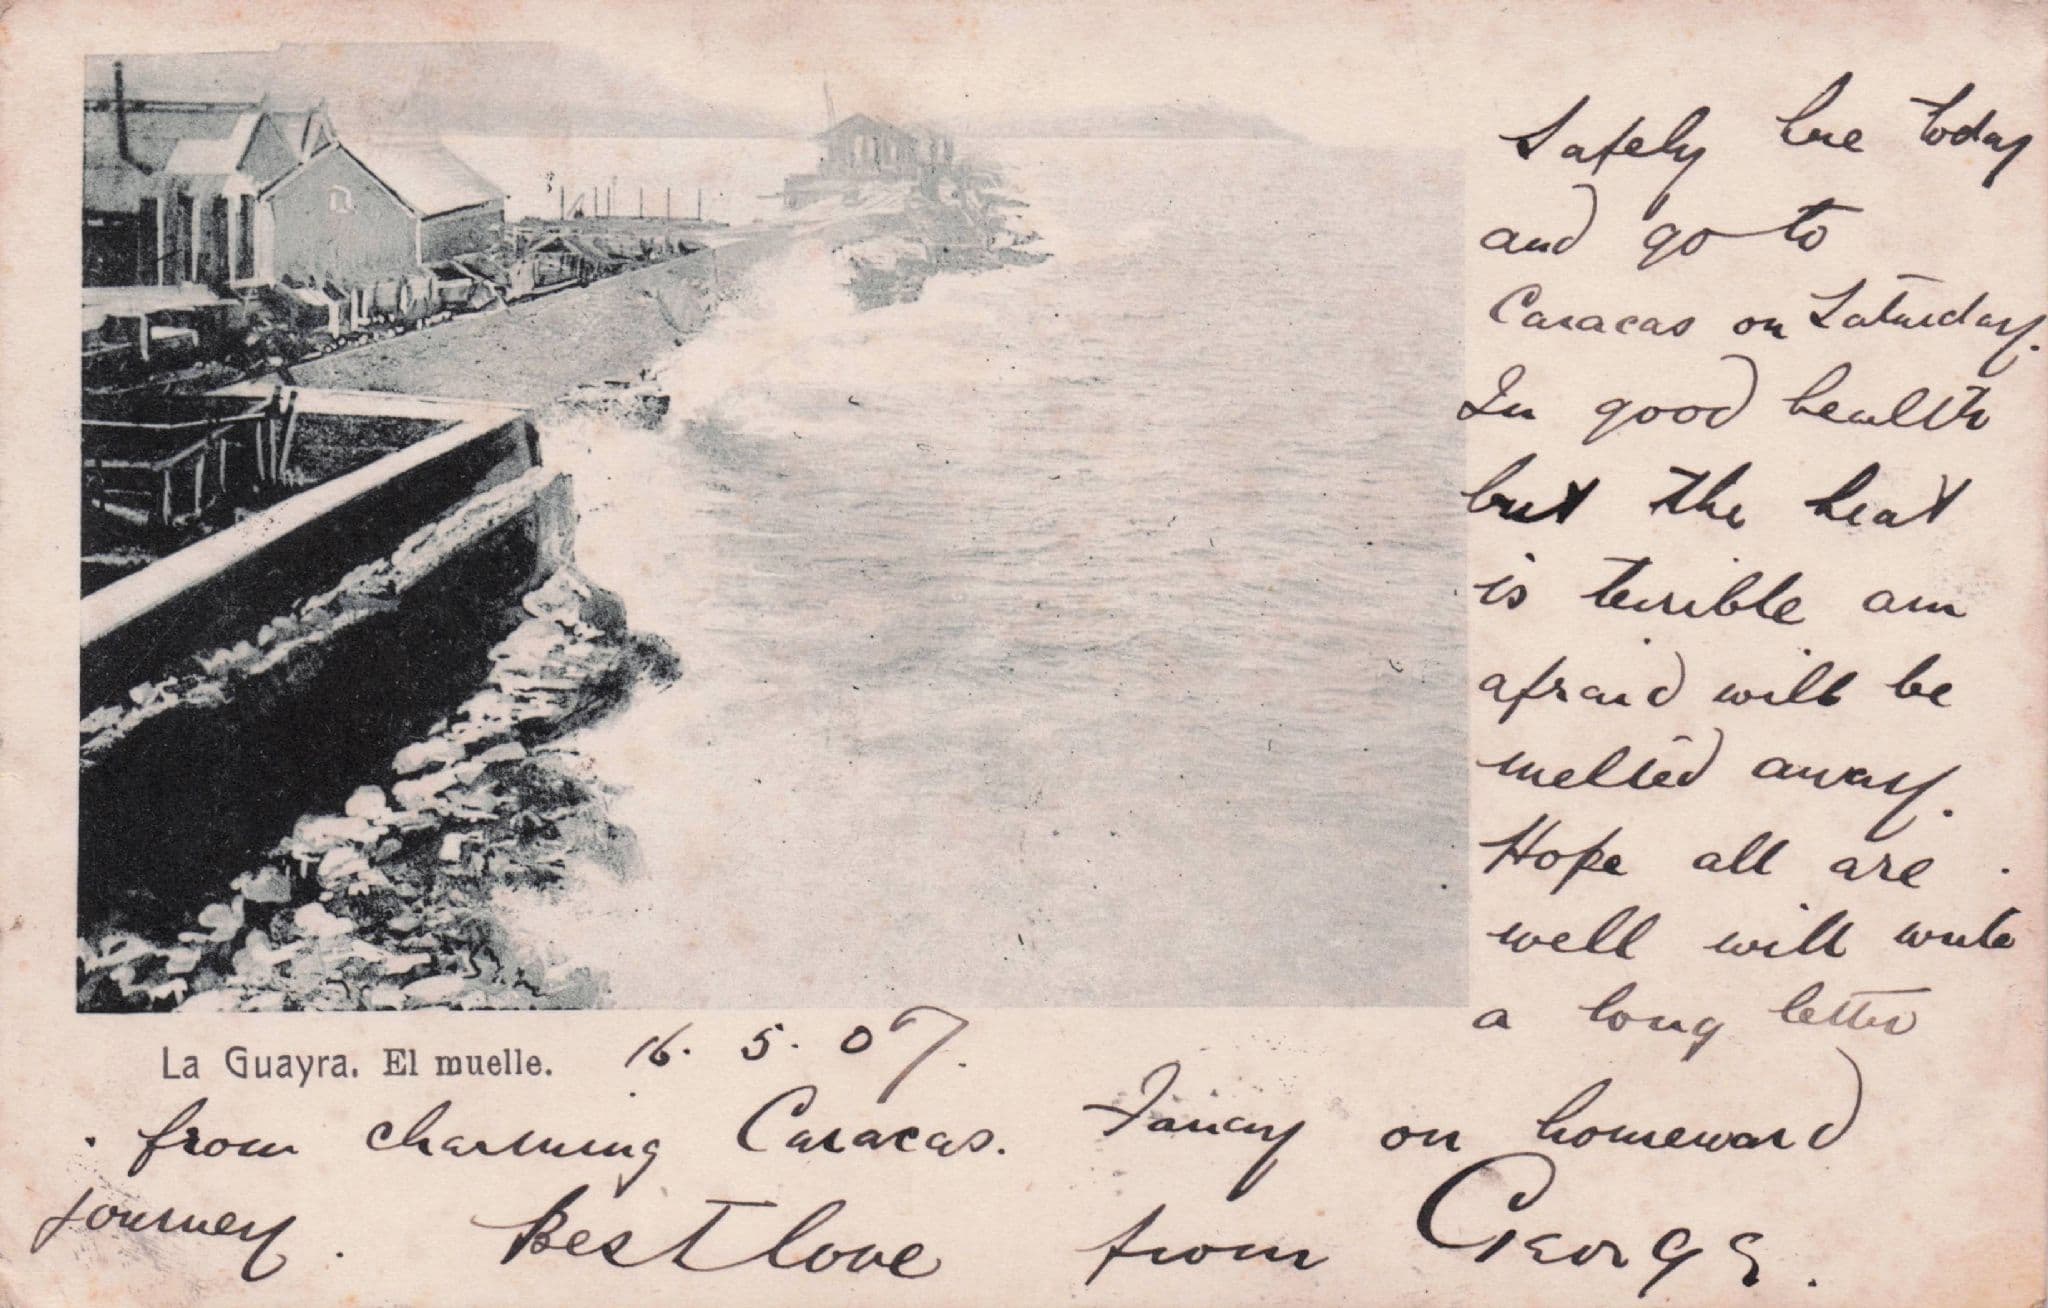 Safely here today
and go to
Caracas on Saturday.
In good health
but the heat
is terrible am
afraid will be
melted away.
Hope all are
well will write
a long letter
La Guayra. El muelle.
16. 5. 07.
from charming Caracas. Fancy on homeward
journey. Best love from George.